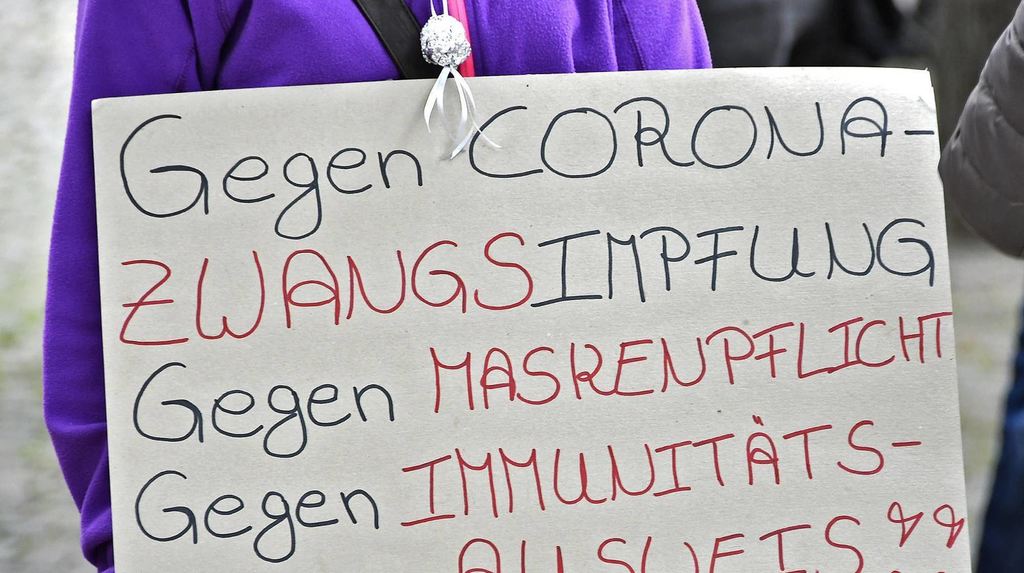 Gegen CORONA-
ZWANGSIMPFUNG
Gegen MASKENPFLICHT
Gegen IMMUNITÄTS-
AUSWEIS!!